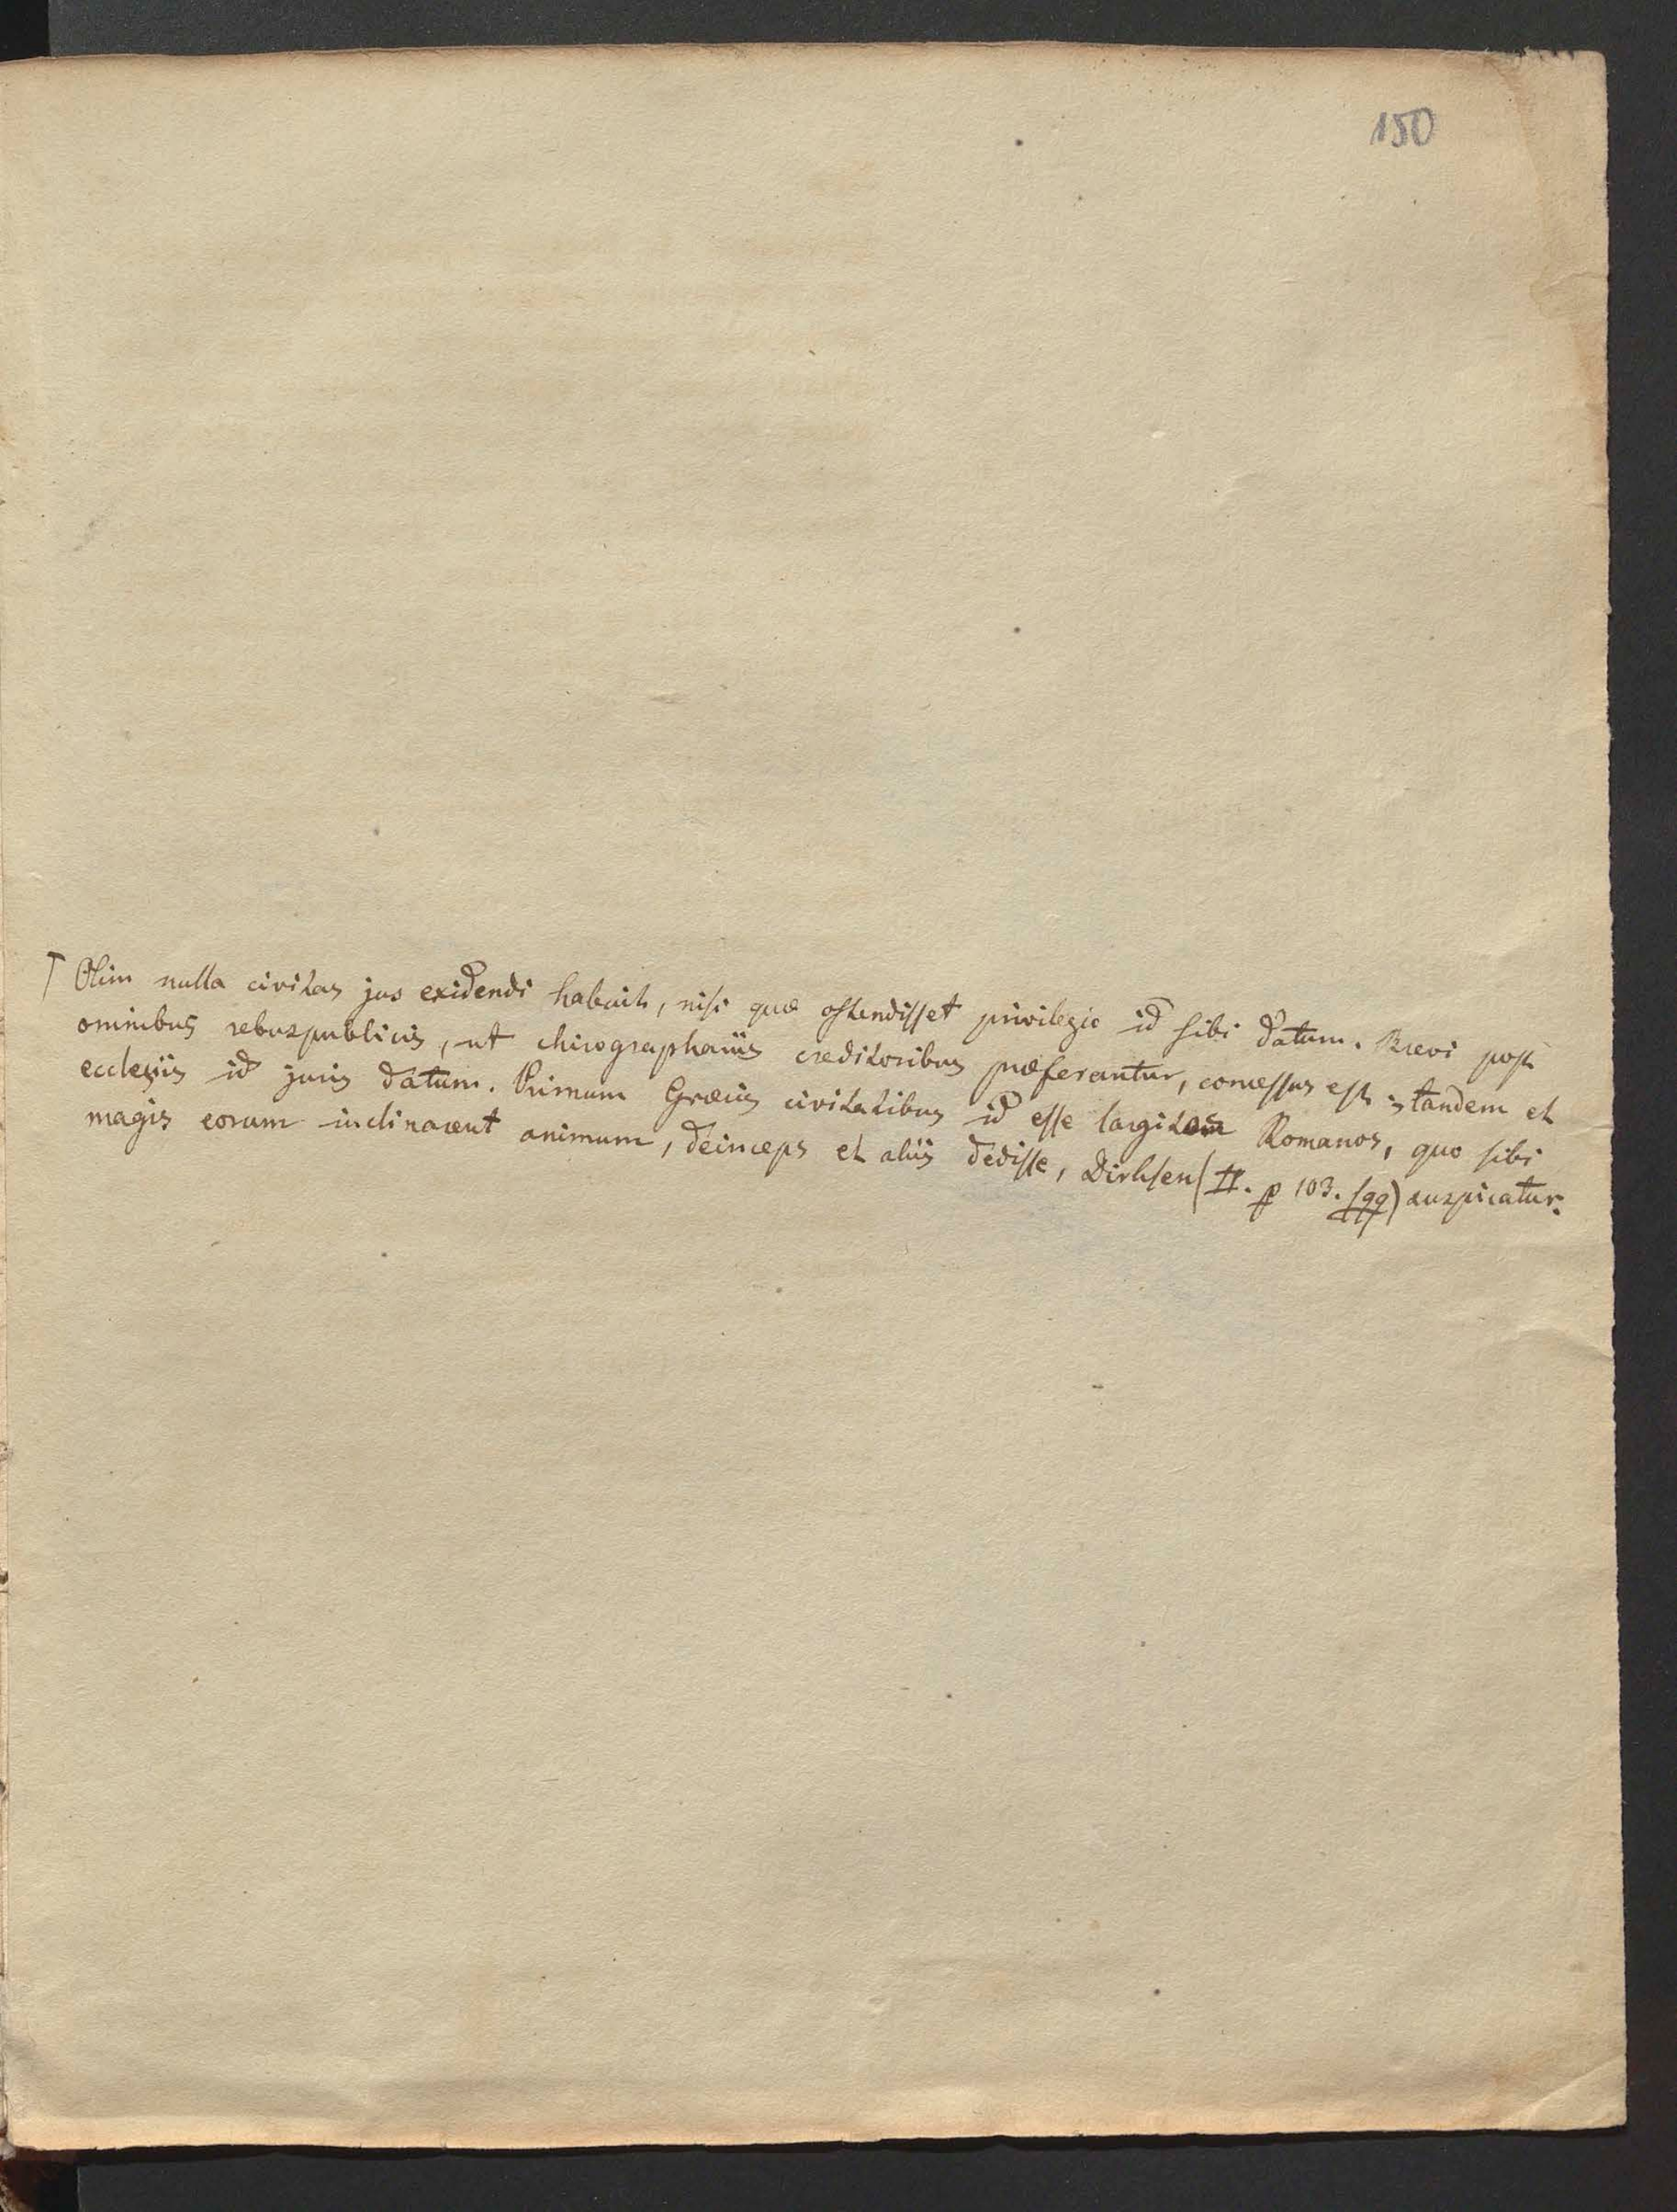 150
Olim nulla civitas jus exidendi habuit, nisi quæ ostendisset privilegio id sibi datum. Brevi post
omnibus rebuspublicis, ut chirographariis creditoribus præferantur, concessus est; tandem et
ecclesiis id juris datum. Primum Græcis civitatibus id esse largitos Romanos, quo sibi
magis eorum inclinarent animum, deinceps et aliis dedisse, Dirksen (II. p 103. sqq) auspicatur.